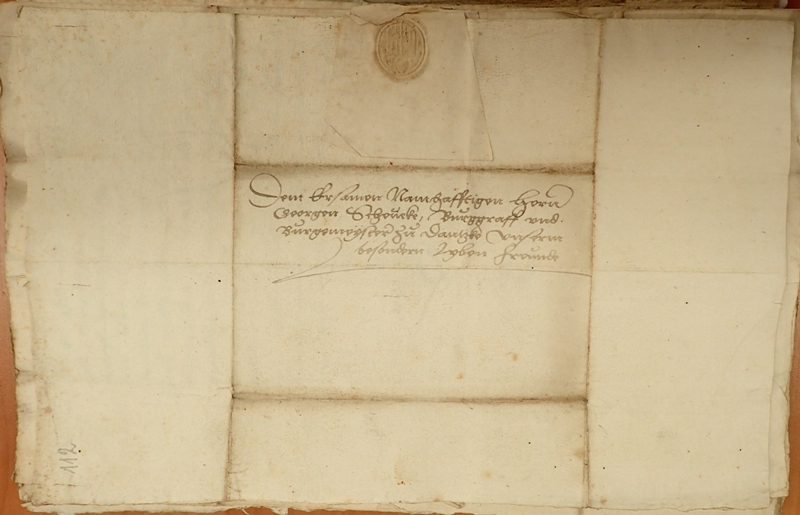 Dem Ersamen Namhafftigen Hern
Georgen Scheweke, Burggraff vnd
Burgemeyster zu Dantzke vnserm
besondern lyben freunde
112